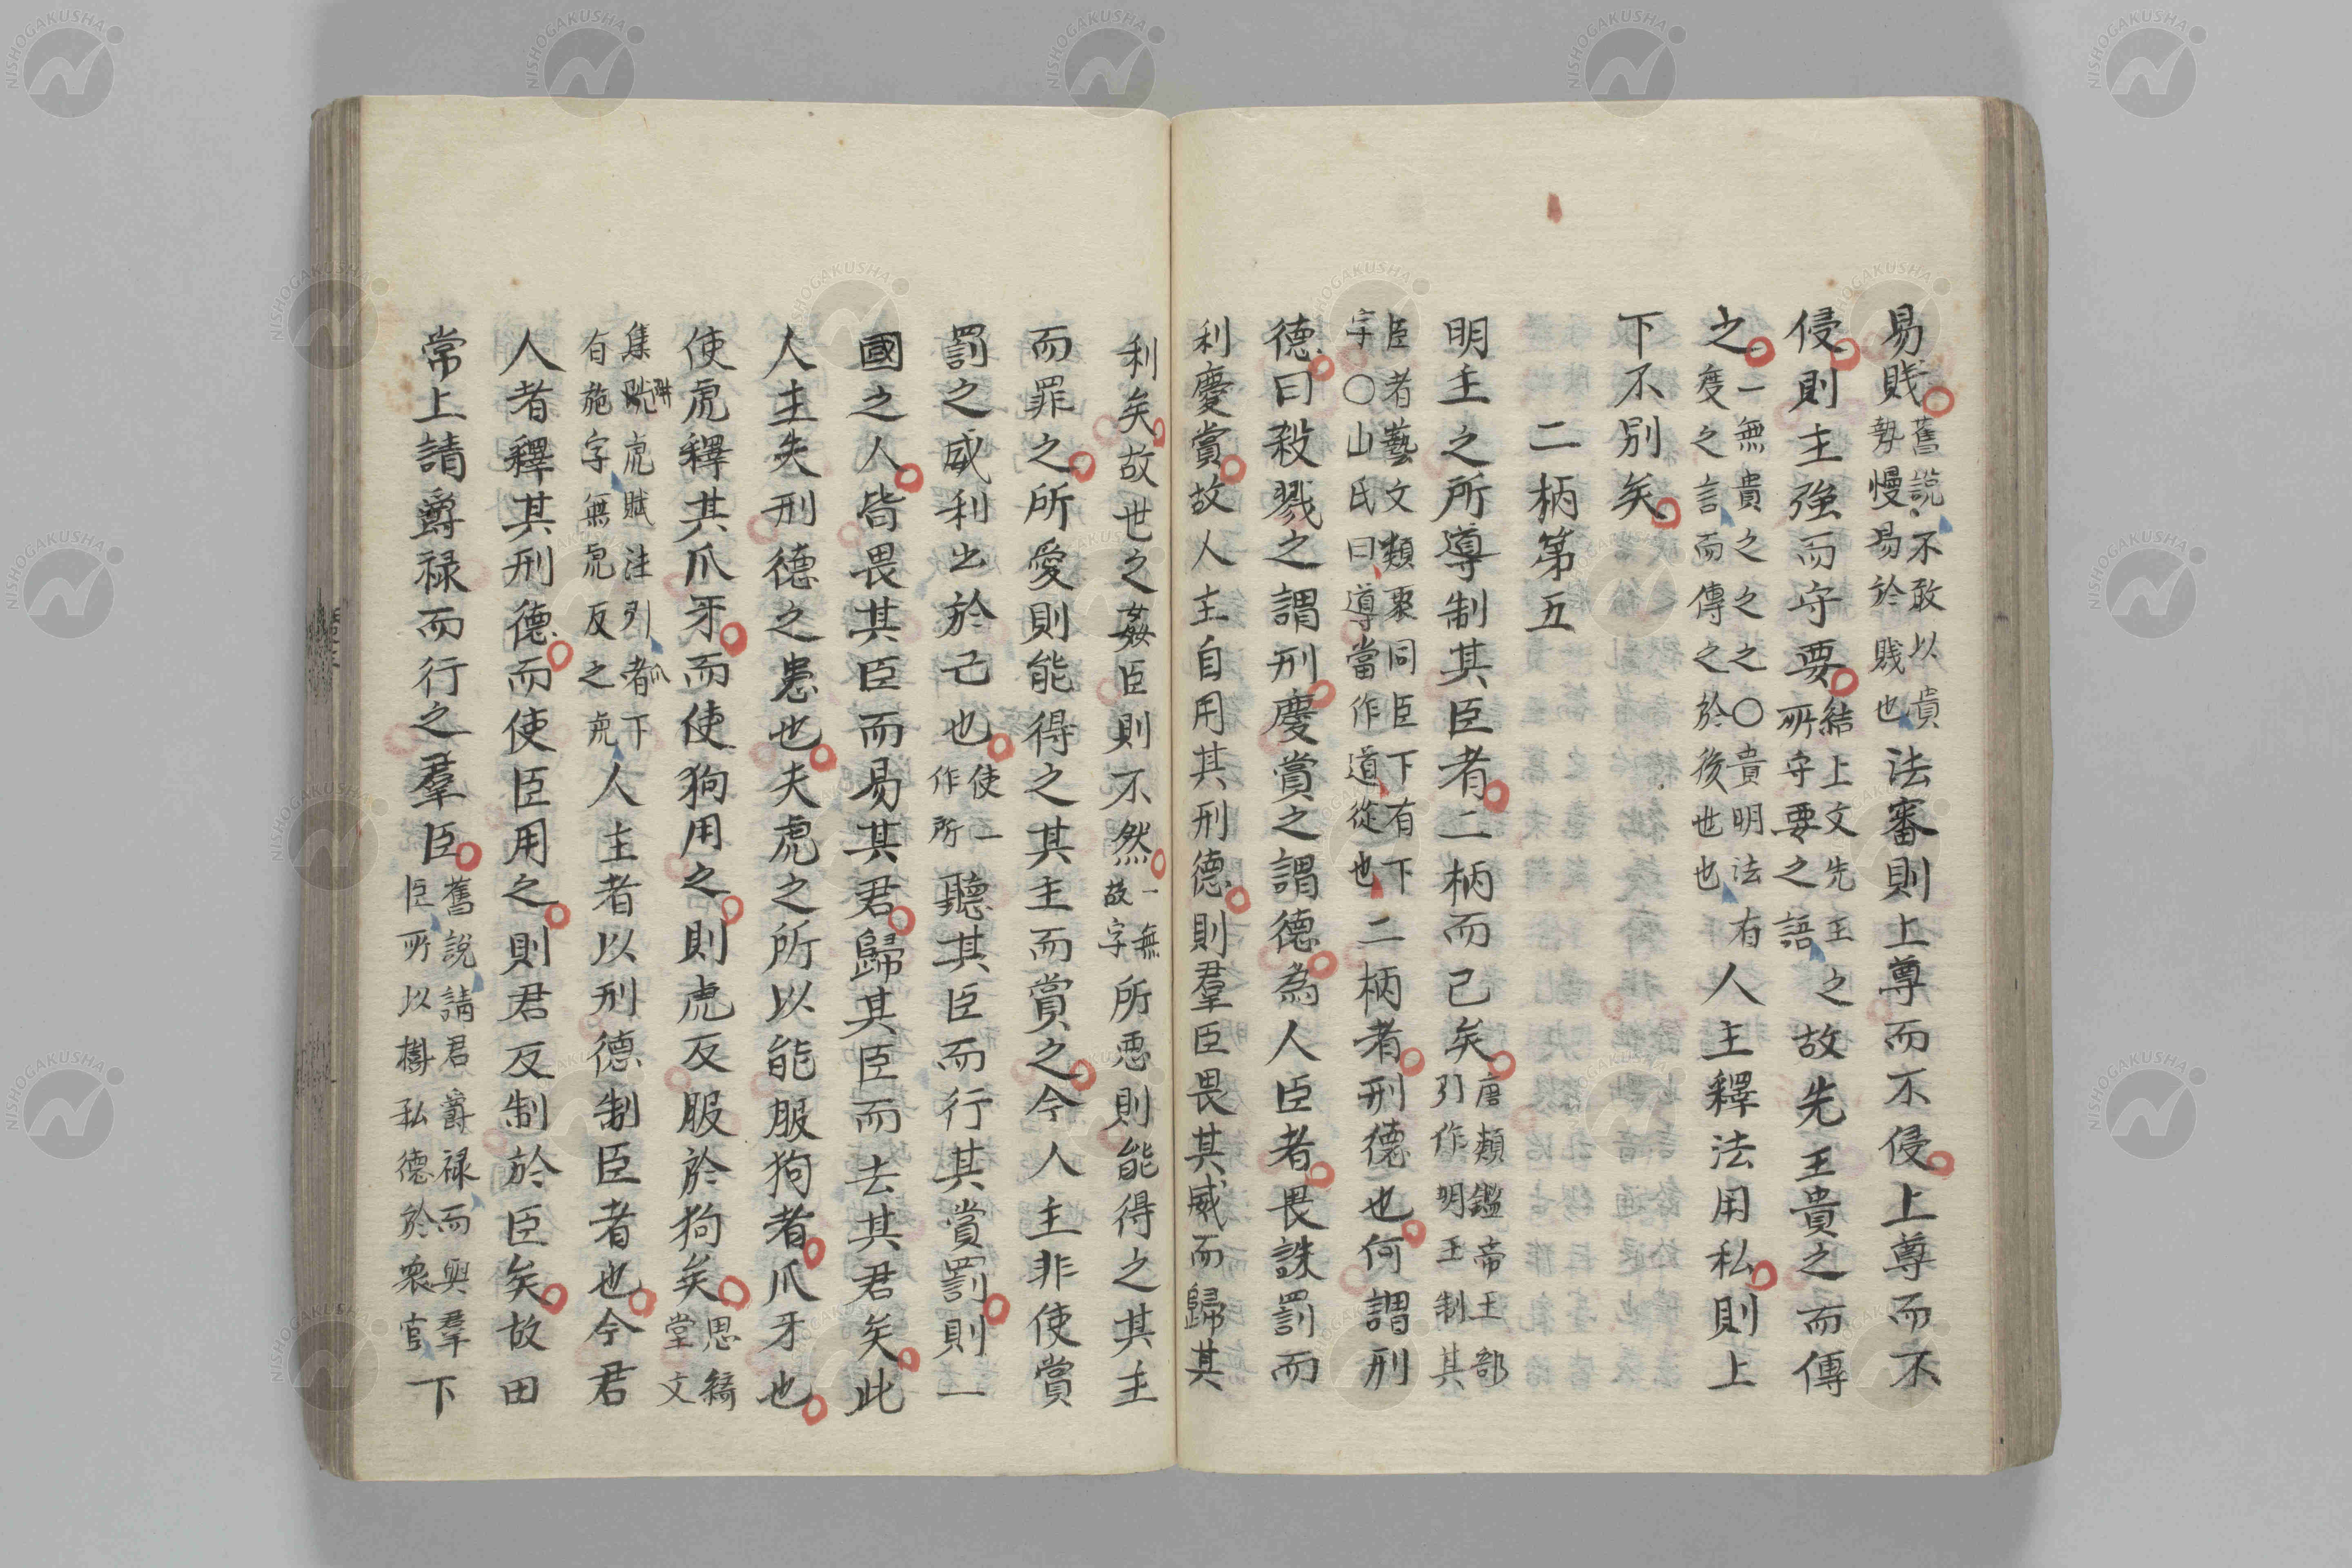 易賤舊説不敢以貴勢慢易於賤也法審則上尊而不侵上尊而不
侵則主強而守要結上文先王所守要之語之故先王貴之而傳
之一無貴之之之〇貴明法度之言而傳之於後世也有人主釋法用私則上
下不別矣
二柄第五
明主之所導制其臣者二柄而已矣唐類鑑帝王部引作明王制其
臣者藝文類聚同臣下有下字〇山氏曰導當作道從也二柄者刑德也何謂刑
德曰殺戮之謂刑慶賞之謂德為人臣者畏誅罰而
利慶賞故人主自用其刑德則羣臣畏其威而歸其
利矣故世之姦臣則不然一無故字所惡則能得之其主
而罪之所愛則能得之其主而賞之今人主非使賞
罰之威利出於己也使一作所聽其臣而行其賞罰則一
國之人皆畏其臣而易其君歸其臣而去其君矣此
人主失刑德之患也夫虎之所以能服狗者爪牙也
使虎釋其爪牙而使狗用之則虎反服於狗矣思綺堂文
集虎賦注引者下有施字無虎反之虎人主者以刑德制臣者也今君
人者釋其刑德而使臣用之則君反制於臣矣故田
常上請爵禄而行之羣臣舊説請君爵禄而與羣臣所以樹私德於衆官下